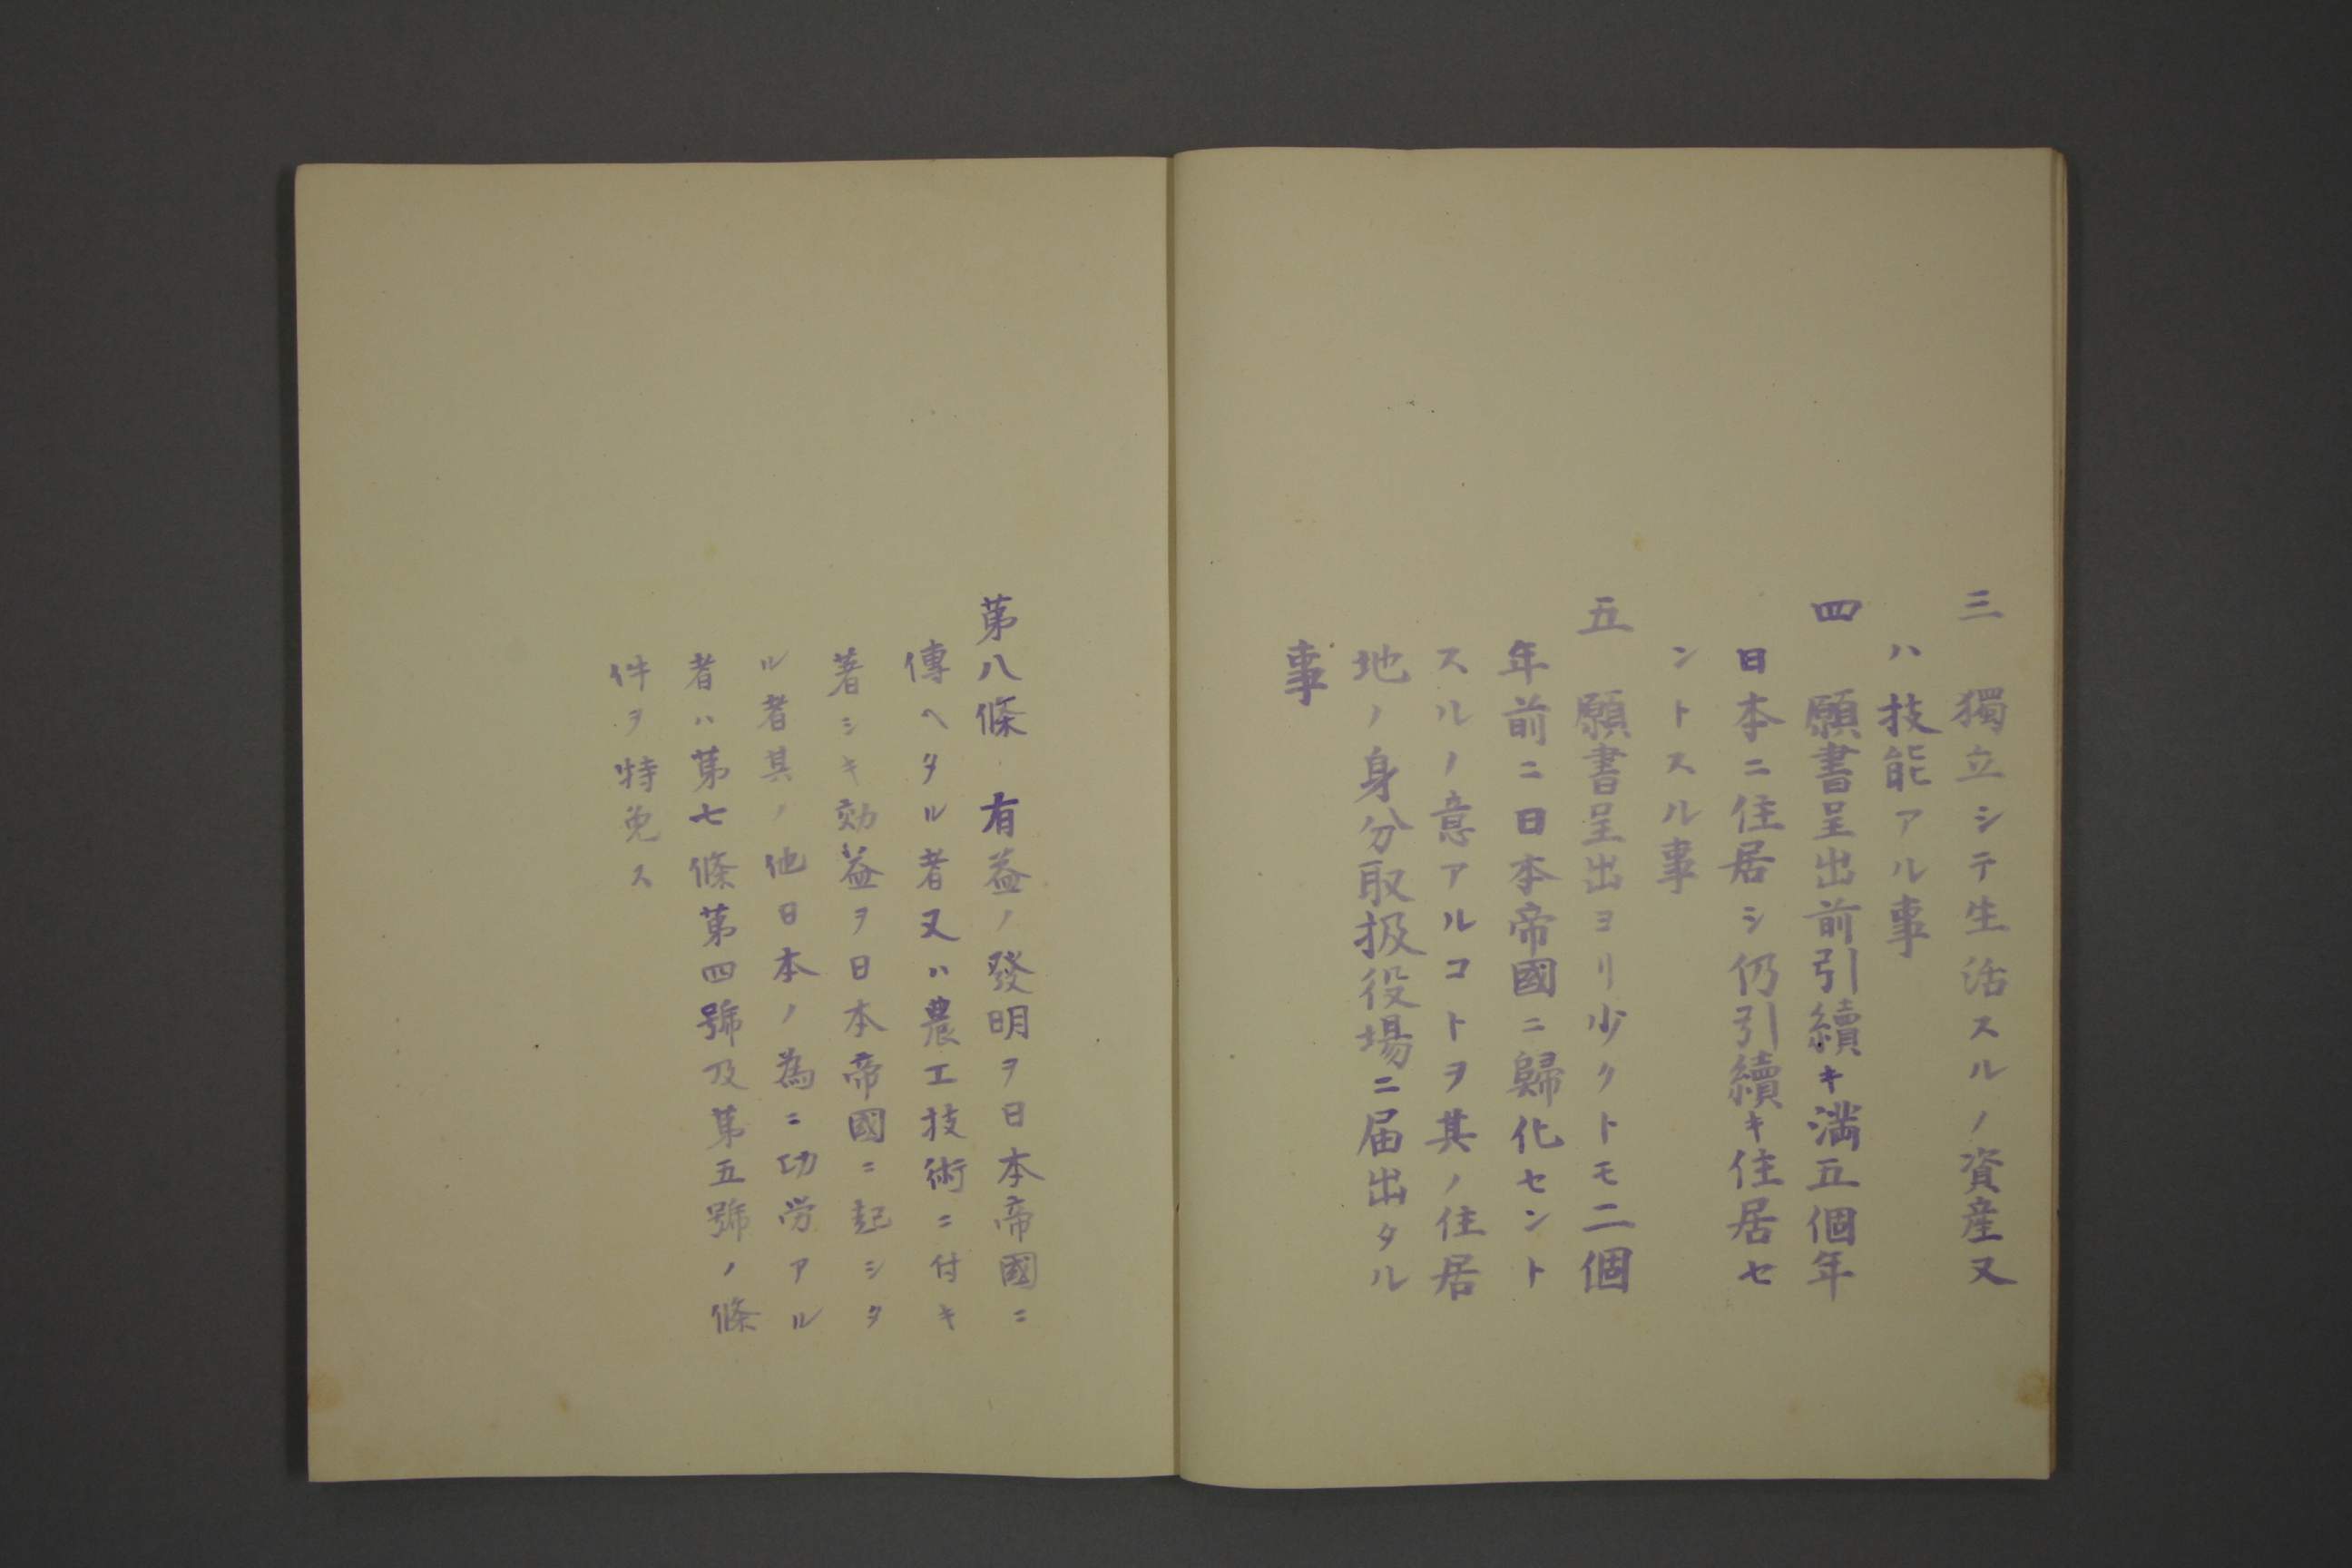 三　獨立シテ生活スルノ資産又
ハ技能アル事
四　願書呈出前引續キ満五個年
日本ニ住居シ仍引續キ住居セ
ントスル事
五　願書呈出ヨリ少クトモ二個
年前ニ日本帝國ニ歸化セント
スルノ意アルコトヲ其ノ住居
地ノ身分取扱役場ニ届出タル
事
第八條　有益ノ發明ヲ日本帝國ニ
傳ヘタル者又ハ農工技術ニ付キ
著シキ効益ヲ日本帝國ニ起シタ
ル者其ノ他日本ノ為ニ功労アル
者ハ第七條第四號及第五號ノ條
件ヲ特免ス